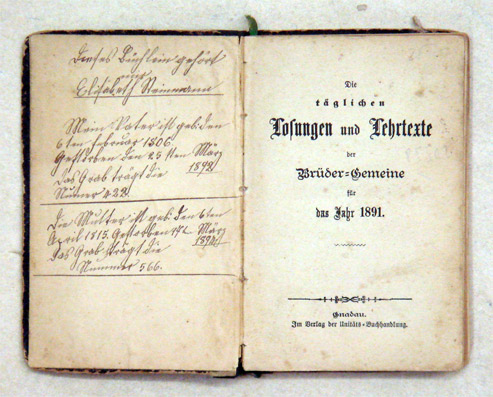 Dieses Büchlein gehört
nur
Elisabeth Steinmann
Mein Vater ist geb. den
6ten Februar 1806.
Gestorben den 25sten März
1892
das Grab trägt die
Numer 422.
Die Mutter ist geb. den 6ten
April 1815. Gestorben März
1894
das Grab trägt die
Nummer 566.
Die
täglichen
Losungen und Lehrtexte
der
Brüder-Gemeine
für
das Jahr 1891.
Gnadau.
Im Verlag der Unitäts-Buchhandlung.